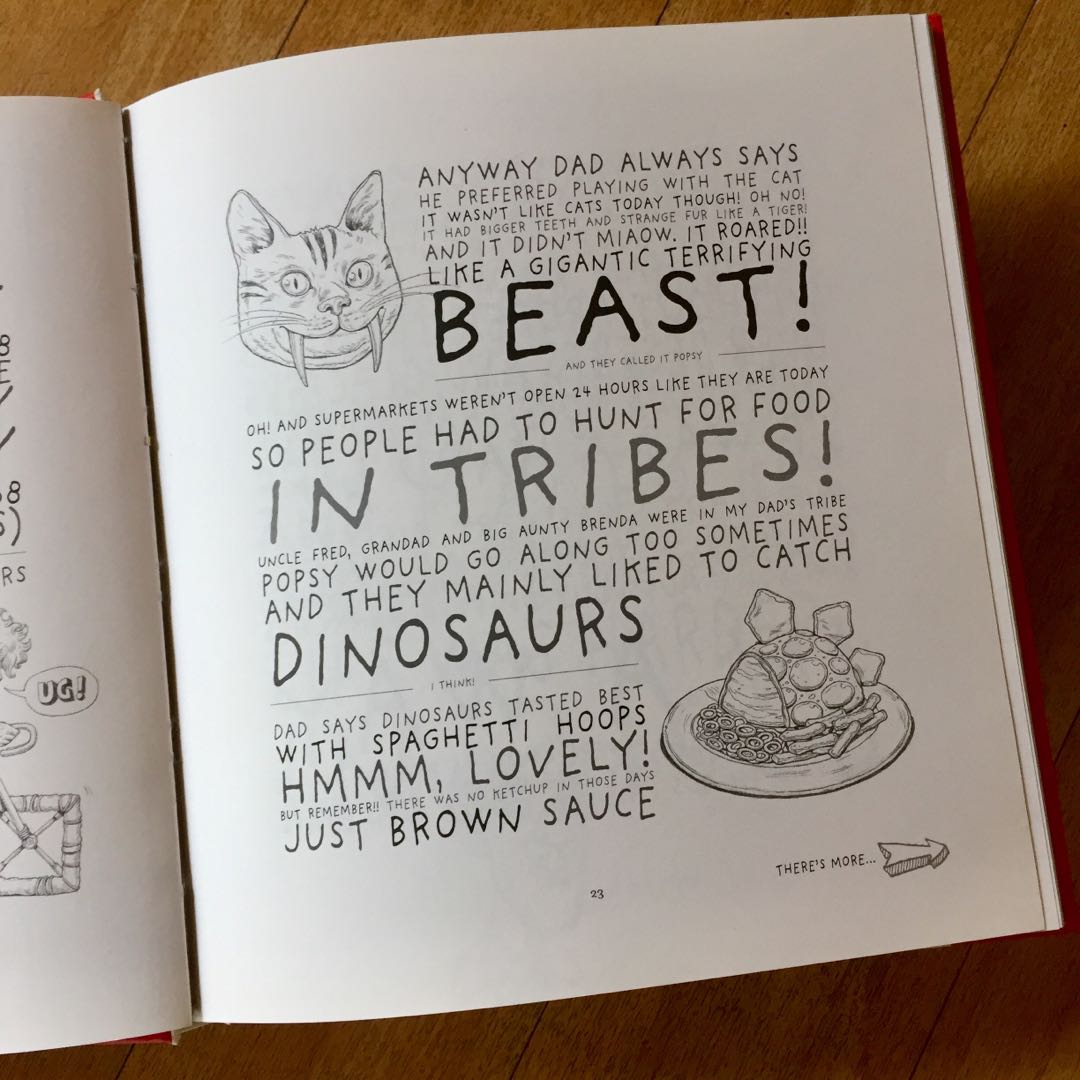 8
E
58
S)
RS
UG!
ANYWAY DAD ALWAYS SAYS
HE PREFERRED PLAYING WITH THE CAT
IT WASN'T LIKE CATS TODAY THOUGH! OH NO!
IT HAD BIGGER TEETH AND STRANGE FUR LIKE A TIGER!
AND IT DIDN'T MIAOW. IT ROARED!!
LIKE A GIGANTIC TERRIFYING
BEAST!
AND THEY CALLED IT POPSY
OH! AND SUPERMARKETS WEREN'T OPEN 24 HOURS LIKE THEY ARE TODAY
SO PEOPLE HAD TO HUNT FOR FOOD
IN TRIBES!
UNCLE FRED, GRANDAD AND BIG AUNTY BRENDA WERE IN MY DAD'S TRIBE
POPSY WOULD GO ALONG TOO SOMETIMES
AND THEY MAINLY LIKED TO CATCH
DINOSAURS
I THINK!
DAD SAYS DINOSAURS TASTED BEST
WITH SPAGHETTI HOOPS
HMMM, LOVELY!
BUT REMEMBER!! THERE WAS NO KETCHUP IN THOSE DAYS
JUST BROWN SAUCE
THERE'S MORE...
23